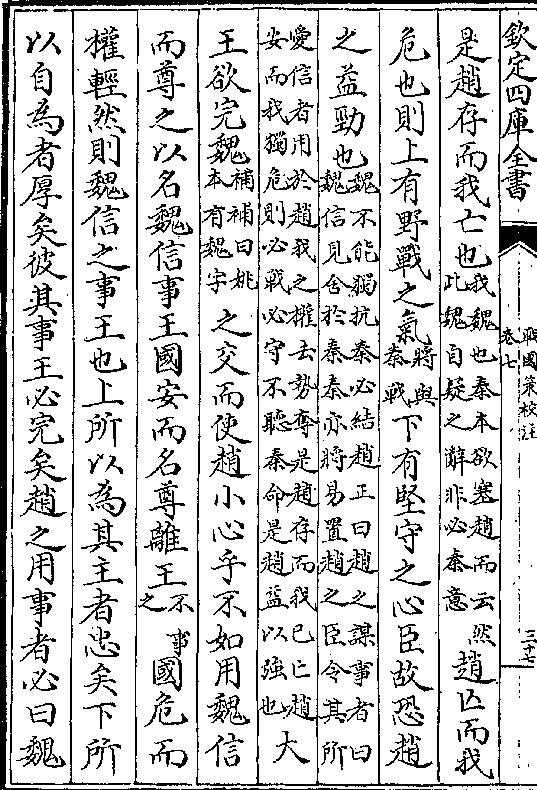 欽定四庫全書
戰國策校注
卷七
三十七
是趙存而我亡也
我魏也秦本欲塞趙而云然
此魏自疑之辭非必秦意
趙亾而我
危也則上有野戰之氣
將與
秦戰
下有堅守之心臣故恐趙
之益勁也
魏不能獨抗秦必結趙正曰趙之謀事者曰
魏信見舍於秦秦亦將易置趙之臣令其所
愛信者用於趙我之權去勢奪是趙存而我已亡趙
安而我獨危則必戰必守不聽秦命是趙益以強也
大
王欲完魏
補補曰姚
本有魏字
之交而使趙小心乎不如用魏信
而尊之以名魏信事王國安而名尊離王
不事
之
國危而
權輕然則魏信之事王也上所以為其主者忠矣下所
以自為者厚矣彼其事王必完矣趙之用事者必曰魏